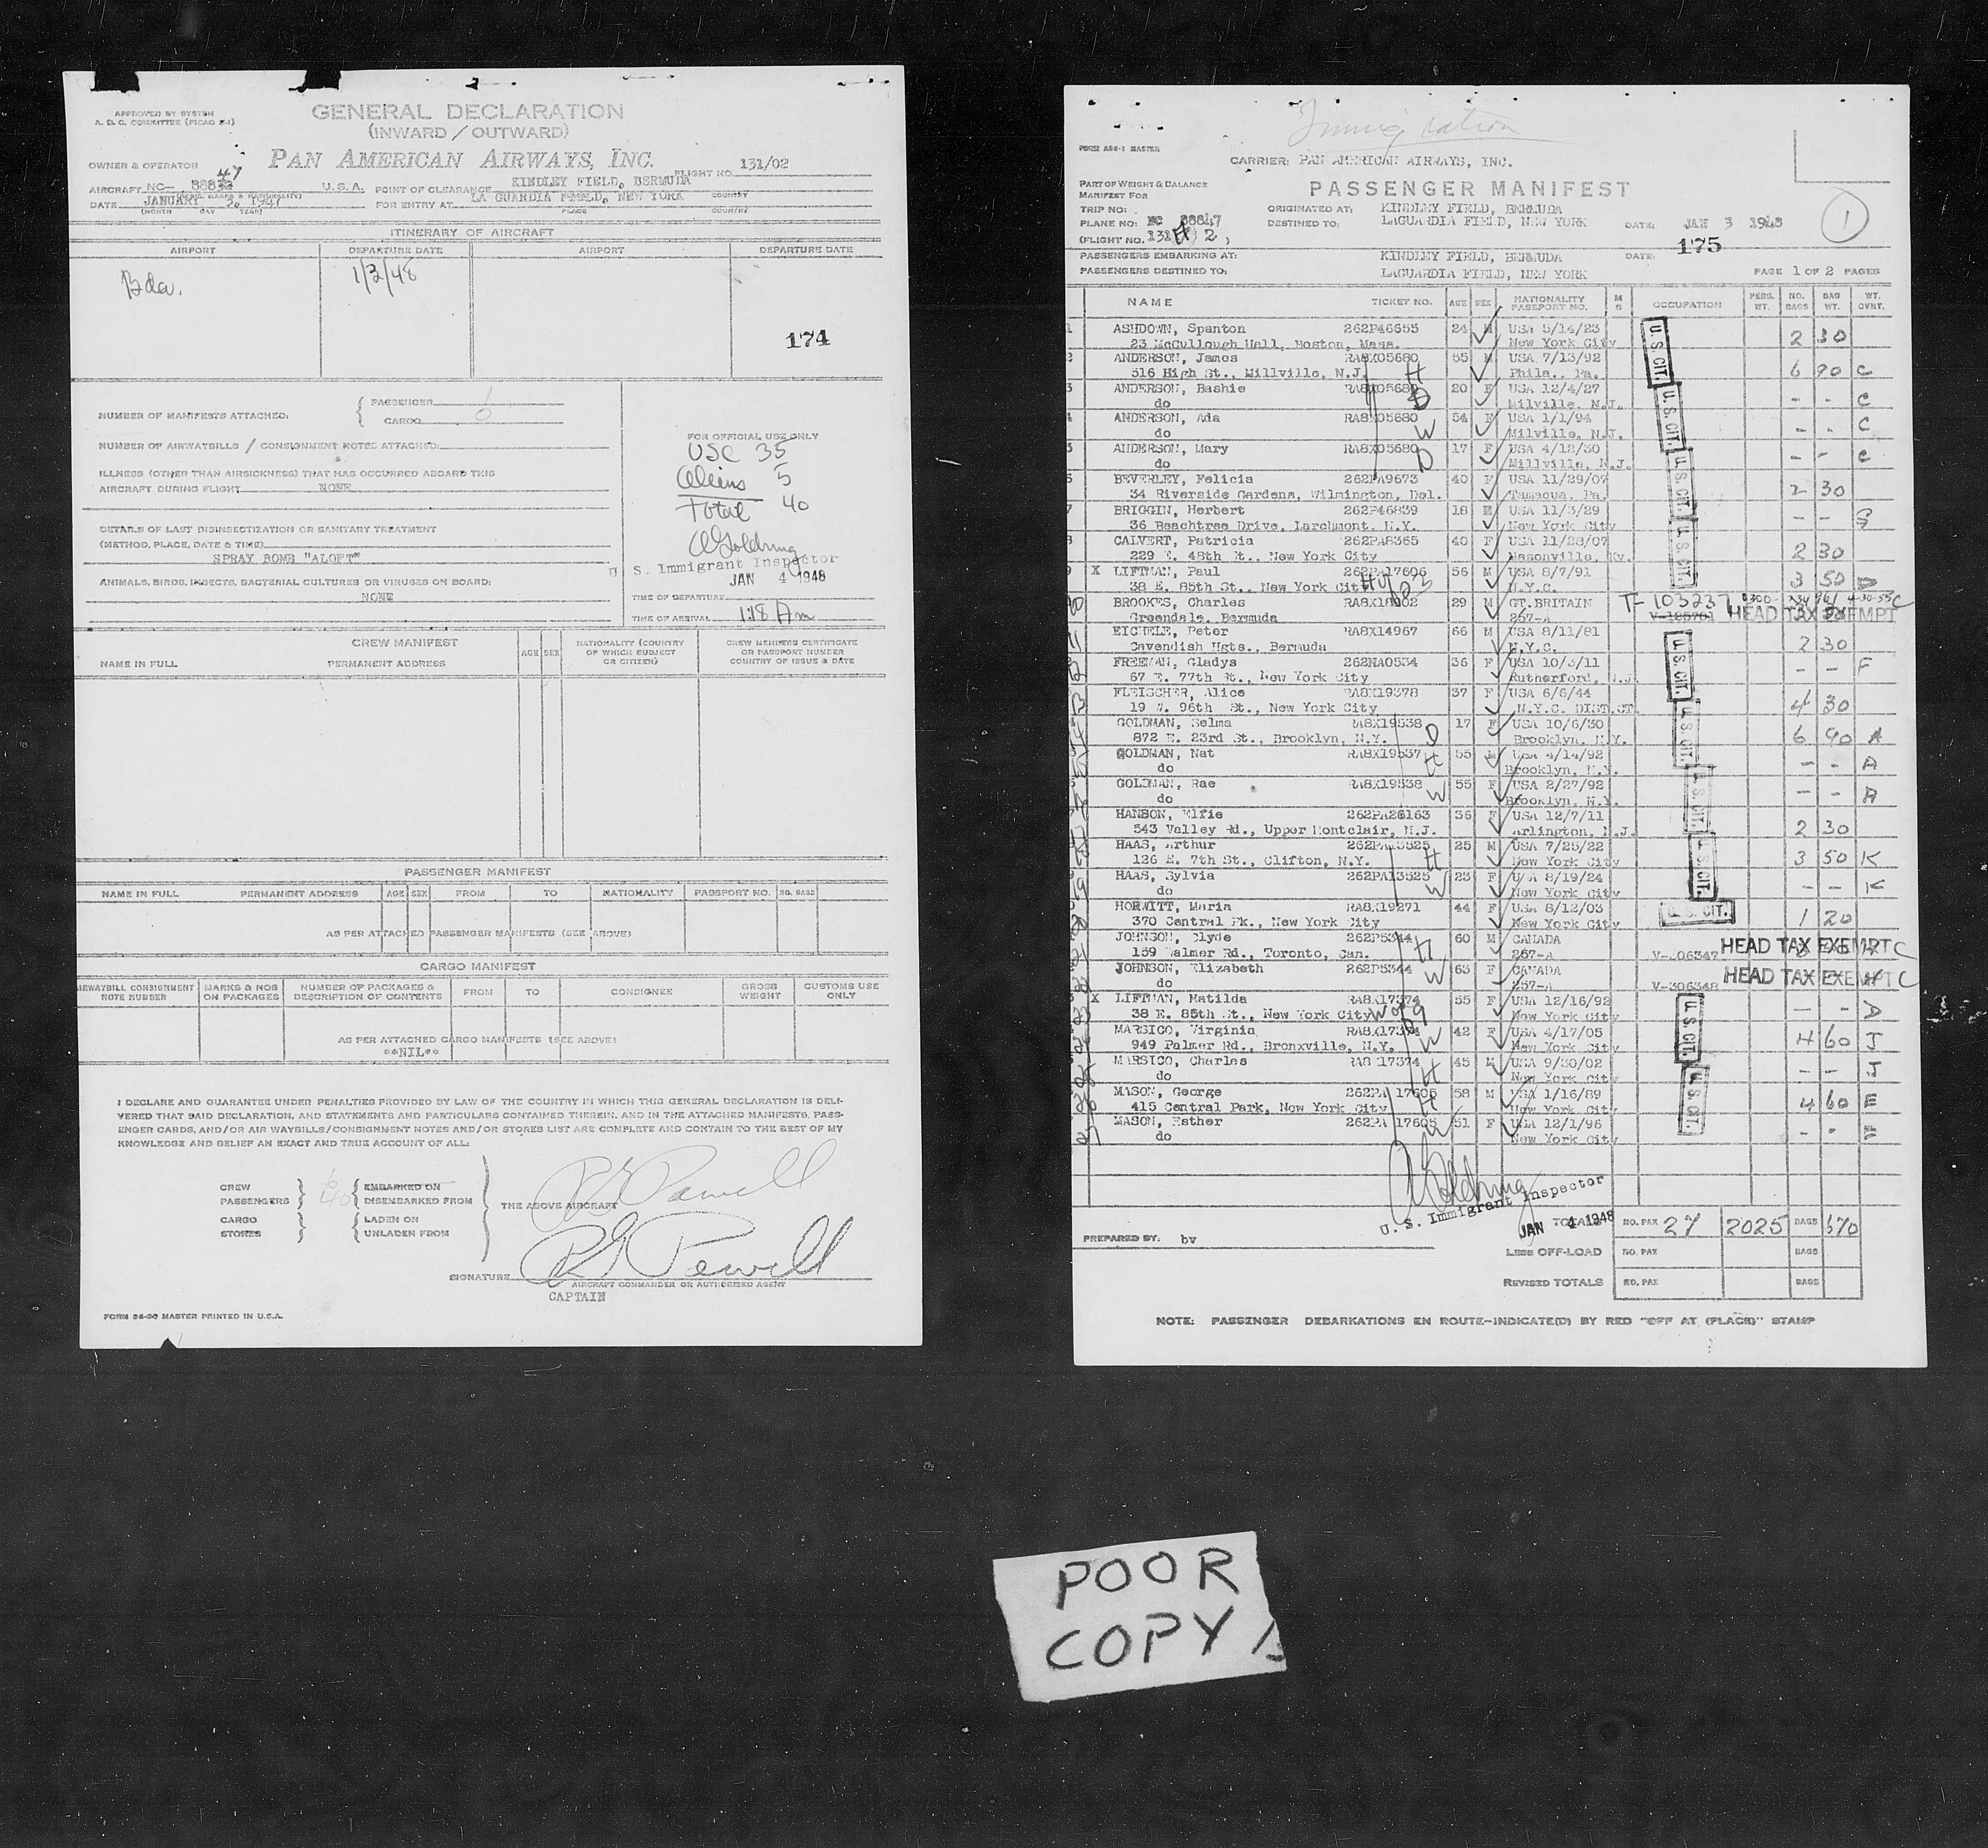 APPROVED BY SYSTEM
A. D. C. COMMITTEE (PICAO E-1)
GENERAL DECLARATION
(INWARD / OUTWARD)
OWNER & OPERATOR PAN AMERICAN AIRWAYS, INC. FLIGHT NO. 131/02
47
AIRCRAFT NC- 888 U.S.A. POINT OF CLEARANCE KINDLEY FIELD, BERMUDA
DATE JANUARY FOR ENTRY AT LA GUARDIA FIELD, NEW YORK
(MONTH DAY YEAR) PLACE COUNTRY
ITINERARY OF AIRCRAFT
AIRPORT DEPARTURE DATE AIRPORT DEPARTURE DATE
Bda. 1/3/48
174
NUMBER OF MANIFESTS ATTACHED: { PASSENGER 1
CARGO 0
NUMBER OF AIRWAYBILLS / CONSIGNMENT NOTES ATTACHED:
ILLNESS (OTHER THAN AIRSICKNESS) THAT HAS OCCURRED ABOARD THIS
AIRCRAFT DURING FLIGHT NONE
DETAILS OF LAST DISINSECTIZATION OR SANITARY TREATMENT
(METHOD, PLACE, DATE & TIME)
SPRAY BOMB "ALOFT"
ANIMALS, BIRDS, INSECTS, BACTERIAL CULTURES OR VIRUSES ON BOARD:
NONE
FOR OFFICIAL USE ONLY
USC 35
Aliens 5
Total 40
A Goldring
U. S. Immigrant Inspector
JAN 4 1948
TIME OF DEPARTURE
TIME OF ARRIVAL 1:18 Am
CREW MANIFEST
NAME IN FULL PERMANENT ADDRESS AGE SEX NATIONALITY (COUNTRY OF WHICH SUBJECT OR CITIZEN) CREW MEMBERS CERTIFICATE OR PASSPORT NUMBER COUNTRY OF ISSUE & DATE
PASSENGER MANIFEST
NAME IN FULL PERMANENT ADDRESS AGE SEX FROM TO NATIONALITY PASSPORT NO. NO. BAGS
AS PER ATTACHED PASSENGER MANIFESTS (SEE ABOVE)
CARGO MANIFEST
AIRWAYBILL CONSIGNMENT NOTE NUMBER MARKS & NOS ON PACKAGES NUMBER OF PACKAGES & DESCRIPTION OF CONTENTS FROM TO CONSIGNEE GROSS WEIGHT CUSTOMS USE ONLY
AS PER ATTACHED CARGO MANIFESTS (SEE ABOVE)
**NIL**
I DECLARE AND GUARANTEE UNDER PENALTIES PROVIDED BY LAW OF THE COUNTRY IN WHICH THIS GENERAL DECLARATION IS DELI-
VERED THAT SAID DECLARATION, AND STATEMENTS AND PARTICULARS CONTAINED THEREIN, AND IN THE ATTACHED MANIFESTS, PASS-
ENGER CARDS, AND/OR AIR WAYBILLS/CONSIGNMENT NOTES AND/OR STORES LIST ARE COMPLETE AND CONTAIN TO THE BEST OF MY
KNOWLEDGE AND BELIEF AN EXACT AND TRUE ACCOUNT OF ALL:
CREW EMBARKED ON
PASSENGERS 40 DISEMBARKED FROM
THE ABOVE AIRCRAFT
CARGO LADEN ON
STORES UNLADEN FROM
SIGNATURE
AIRCRAFT COMMANDER OR AUTHORIZED AGENT
CAPTAIN
FORM 56-90 MASTER PRINTED IN U.S.A.
Immigration
CARRIER: PAN AMERICAN AIRWAYS, INC.
PART OF WEIGHT & BALANCE
MANIFEST FOR
PASSENGER MANIFEST
TRIP NO: ORIGINATED AT: KINDLEY FIELD, BERMUDA
PLANE NO: NC 88847 DESTINED TO: LAGUARDIA FIELD, NEW YORK DATE: JAN 3 1948 1
(FLIGHT NO. 131 2 ) 175
PASSENGERS EMBARKING AT: KINDLEY FIELD, BERMUDA DATE:
PASSENGERS DESTINED TO: LAGUARDIA FIELD, NEW YORK PAGE 1 OF 2 PAGES
NAME TICKET NO. AGE SEX NATIONALITY PASSPORT NO. M S OCCUPATION PERS. WT. NO. BAGS BAG WT. WT. OVNT.
1 ASHDOWN, Spanton 262P46655 24 M USA 5/14/23 U.S.CIT.
23 McCullough Hall, Boston, Mass. New York City 2 30
2 ANDERSON, James RA8X05680 55 M USA 7/13/92
516 High St., Millville, N.J. H Phila., Pa. 6 90 C
3 ANDERSON, Bashie RA8X05680 20 F USA 12/4/27
do D Milville, N.J. - - C
4 ANDERSON, Ada RA8X05680 54 F USA 1/1/94 U.S.CIT.
do W Milville, N.J. - - C
5 ANDERSON, Mary RA8X05680 17 F USA 4/12/30
do D Millville, N.J. - - C
6 BEVERLEY, Felicia 262PA9673 40 F USA 11/29/07 U.S.CIT.
34 Riverside Gardens, Wilmington, Del. Tamaqua, Pa. 2 30
7 BRIGGIN, Herbert 262P46839 18 M USA 11/3/29
36 Beachtree Drive, Larchmont, N.Y. New York City - - G
8 CALVERT, Patricia 262PA8365 40 F USA 11/28/07 U.S.CIT.
229 E. 48th St., New York City Masonville, Ky. 2 30
9 X LIFTMAN, Paul 262PA17606 56 M USA 8/7/91
38 E. 85th St., New York City H of 23 N.Y.C. 3 50 D
10 BROOKES, Charles RA8X18902 29 M GT.BRITAIN T-103237
Greendale, Bermuda 257-A HEAD TAX EXEMPT
11 EICHELE, Peter RA8X14967 66 M USA 8/11/81
Cavendish Hgts., Bermuda N.Y.C. 2 30
12 FREEMAN, Gladys 262NA0534 36 F USA 10/3/11 U.S.CIT.
67 E. 77th St., New York City Rutherford, N.J. - - F
13 FLEISCHER, Alice RA8X19378 37 F USA 6/6/44
19 W. 96th St., New York City N.Y.C. DIST.CT. 4 30
14 GOLDMAN, Selma RA8X19538 17 F USA 10/6/30 U.S.CIT.
872 E. 23rd St., Brooklyn, N.Y. D Brooklyn, N.Y. 6 90 A
15 GOLDMAN, Nat RA8X19537 55 M USA 4/14/92
do H Brooklyn, N.Y. - - A
16 GOLDMAN, Rae RA8X19538 55 F USA 2/27/92 U.S.CIT.
do W Brooklyn, N.Y. - - A
17 HANSON, Elfie 262PA26163 36 F USA 12/7/11
543 Valley Rd., Upper Montclair, N.J. Arlington, N.J. 2 30
18 HAAS, Arthur 262PA13525 25 M USA 7/25/22 U.S.CIT.
126 E. 7th St., Clifton, N.Y. H New York City 3 50 K
19 HAAS, Sylvia 262PA13525 23 F USA 8/19/24
do W New York City - - K
20 HORWITT, Maria RA8X19271 44 F USA 8/12/03 U.S.CIT.
370 Central Pk., New York City New York City 1 20
21 JOHNSON, Clyde 262P5344 60 M CANADA
159 Walmer Rd., Toronto, Can. H 257-A V-306347 HEAD TAX EXEMPT C
22 JOHNSON, Elizabeth 262P5344 63 F CANADA
do W 257-A V-306348 HEAD TAX EXEMPT C
23 X LIFTMAN, Matilda RA8X17374 55 F USA 12/16/92 U.S.CIT.
38 E. 85th St., New York City W of 9 New York City - - D
24 MARSICO, Virginia RA8X17374 42 F USA 4/17/05
949 Palmer Rd., Bronxville, N.Y. W New York City 4 60 J
25 MARSICO, Charles RA8X17374 45 M USA 9/30/02 U.S.CIT.
do H New York City - - J
26 MASON, George 262PA 17605 58 M USA 1/16/89
415 Central Park, New York City H New York City 4 60 E
27 MASON, Esther 262PA 17605 51 F USA 12/1/96
do W New York City - - E
A Goldring
U. S. Immigrant Inspector
JAN 4 1948
TOTALS NO. PAX 27 2025 BAGS 670
PREPARED BY: bv
LESS OFF-LOAD NO. PAX BAGS
REVISED TOTALS NO. PAX BAGS
NOTE: PASSENGER DEBARKATIONS EN ROUTE-INDICATE(D) BY RED "OFF AT (PLACE)" STAMP
POOR
COPY